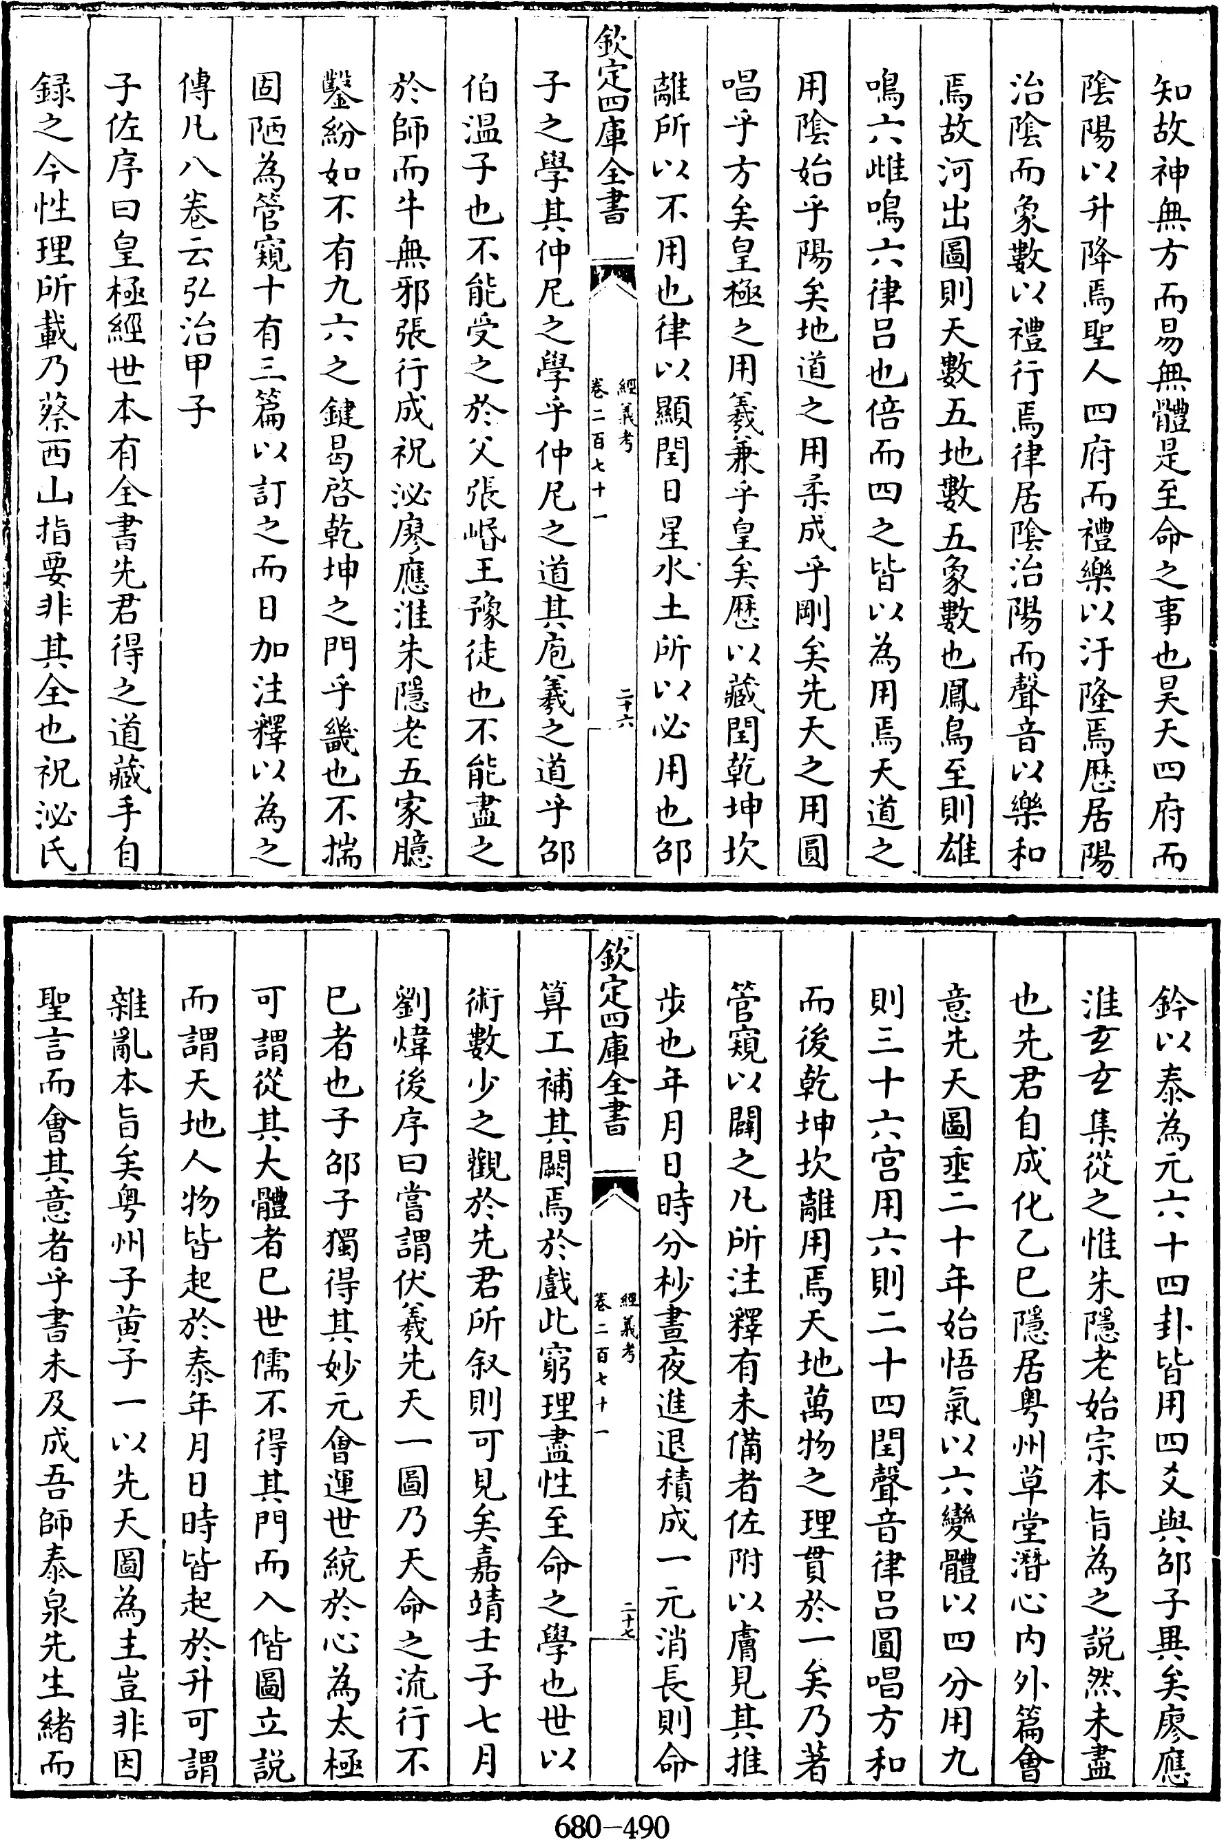 知故神無方而易無體是至命之事也昊天四府而
陰陽以升降焉聖人四府而禮樂以汙隆焉歴居陽
治陰而象數以禮行焉律居陰治陽而聲音以樂和
焉故河出圖則天數五地數五象數也鳳鳥至則雄
鳴六雌鳴六律吕也倍而四之皆以為用焉天道之
用陰始乎陽矣地道之用柔成乎剛矣先天之用圓
唱乎方矣皇極之用羲兼乎皇矣歴以藏閏乾坤坎
離所以不用也律以顯閏日星水土所以必用也邵
欽定四庫全書
經義考
卷二百七十一
二十六
子之學其仲尼之學乎仲尼之道其庖羲之道乎邵
伯温子也不能受之於父張㟭王豫徒也不能盡之
於師而牛無邪張行成祝泌廖應淮朱隱老五家臆
鑿紛如不有九六之鍵曷啓乾坤之門乎畿也不揣
固陋為管窺十有三篇以訂之而日加注釋以為之
傳凡八卷云弘治甲子
子佐序曰皇極經世本有全書先君得之道藏手自
録之今性理所載乃蔡西山指要非其全也祝泌氏
鈐以泰為元六十四卦皆用四爻與邵子異矣廖應
淮玄玄集從之惟朱隱老始宗本旨為之説然未盡
也先君自成化乙巳隱居粤州草堂潛心内外篇會
意先天圖垂二十年始悟氣以六變體以四分用九
則三十六宫用六則二十四閏聲音律吕圓唱方和
而後乾坤坎離用焉天地萬物之理貫於一矣乃著
管窺以闢之凡所注釋有未備者佐附以膚見其推
步也年月日時分杪晝夜進退積成一元消長則命
欽定四庫全書
經義考
卷二百七十一
二十七
算工補其闕焉於戲此窮理盡性至命之學也世以
術數少之觀於先君所叙則可見矣嘉靖壬子七月
劉煒後序曰嘗謂伏羲先天一圖乃天命之流行不
已者也子邵子獨得其妙元會運世統於心為太極
可謂從其大體者已世儒不得其門而入偕圖立説
而謂天地人物皆起於泰年月日時皆起於升可謂
雜亂本旨矣粤州子黄子一以先天圖為主豈非因
聖言而會其意者乎書未及成吾師泰泉先生緒而
680-490